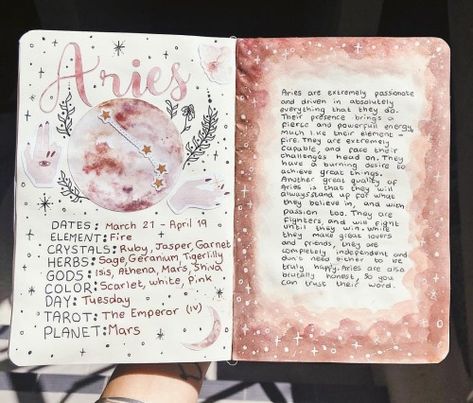 Aries
DATES: March 21 - April 19
ELEMENT: Fire
CRYSTALS: Ruby, Jasper, Garnet
HERBS: Sage, Geranium, Tigerlilly
GODS: Isis, Athena, Mars, Shiva
COLOR: Scarlet, white, Pink
DAY: Tuesday
TAROT: The Emperor (IV)
PLANET: Mars
Aries are extremely passionate
and driven in absolutely
everything that they do.
Their presence brings a
fierce and powerfull energy,
Much like their element -
fire. They are extremely
capable, and face their
challenges head on. They
have a burning desire to
achieve great things.
Another great quality of
Aries is that they will
always stand up for what
they believe in, and with
passion too. They are
fighters, and will fight
until they win. While
they make great lovers
and friends, they are
completely independent and
don't need either to be
truly happy. Aries are also
brutally honest, so you
can trust their word.